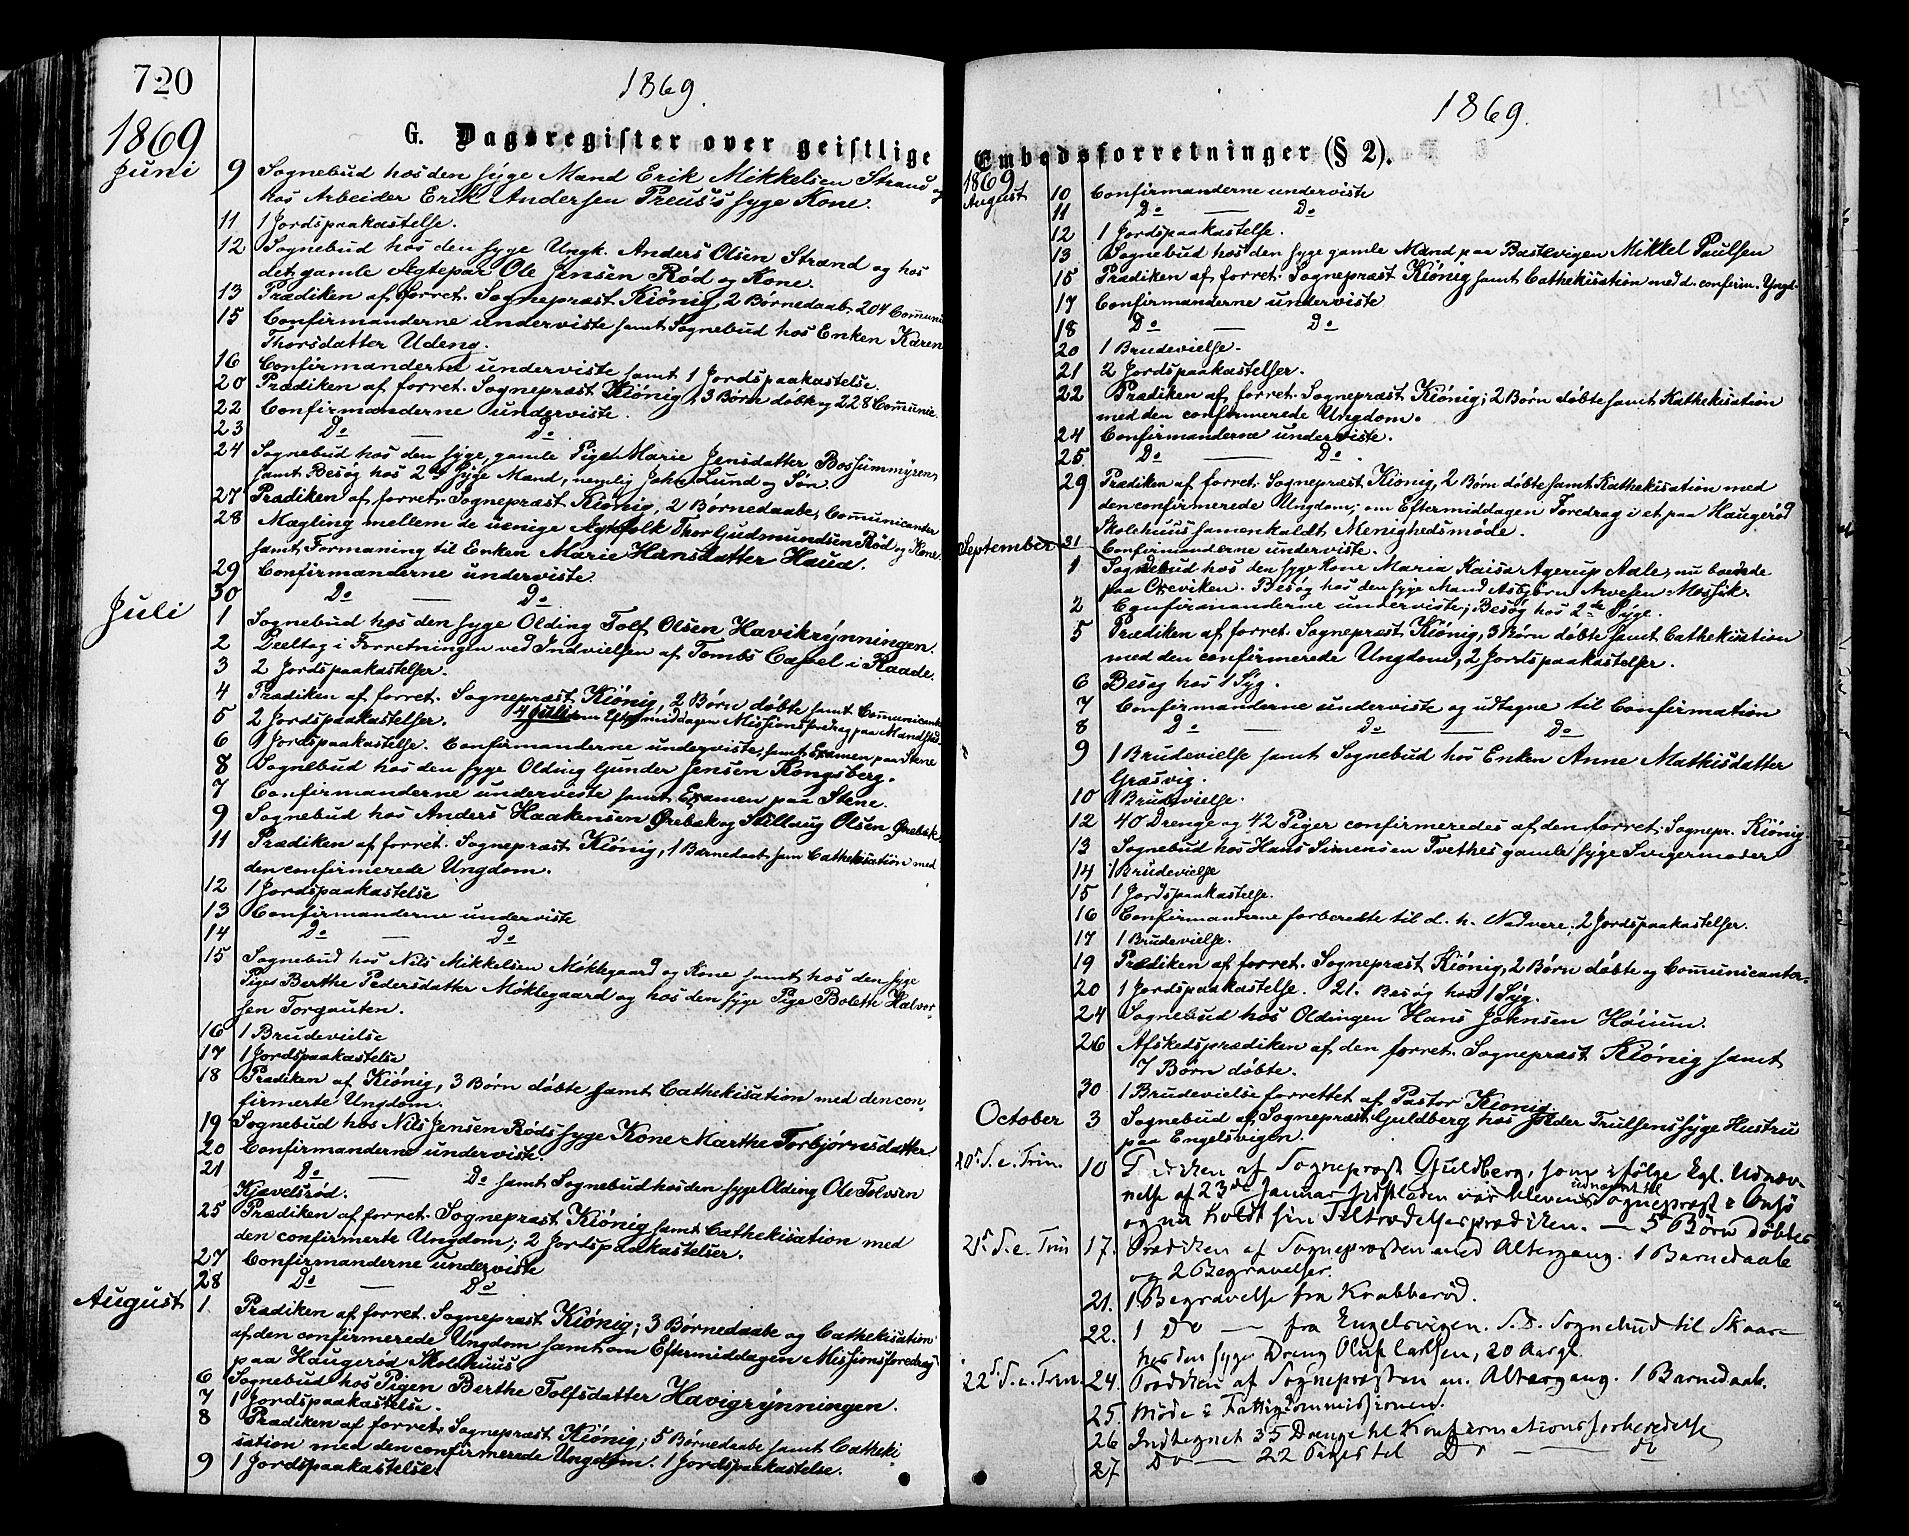 720
1869.
1869
G. Dagsregister over geistlige
Juni 9 Sognebud hos den syge Mand Erik Mikkelsen Strand og
hos Arbeider Erik Andersen Preus's syge Kone.
11 1 Jordspaakastelse.
12 Sognebud hos den syge Ungk. Anders Olsen Strand og hos
det gamle Ægtepar Ole Jensen Rød og Kone.
13 Prædiken af forret. Sognepræst Kiönig, 2 Børnedaab, 204 Communi
15 Confirmanderne underviste samt Sognebud hos Enken Karen
Thorsdatter Udeng.
16 Confirmanderne underviste samt 1 Jordspaakastelse.
20 Prædiken af forret. Sognepræst Kiönig, 3 Børn døbte og 228 Communic.
22 Confirmanderne underviste.
23 Do — Do
24 Sognebud hos den syge, gamle Pige Marie Jensdatter Bossummyren,
samt Besøg hos 2de syge Mænd, nemlig Johs Lund og Søn.
27 Prædiken af forret. Sognepræst Kiönig, 2 Børnedaabe, Communicanter
28 Mægling mellem de uenige Ægtefolk Thor Gudmundsen Rød og Kone
samt Formaning til Enken Marie Hansdatter Haua.
29 Confirmanderne underviste.
30 Do — Do
Juli 1 Sognebud hos den syge Olding Tolf Olsen Havikrynningen.
2 Deeltog i Forretningen ved Indvielsen af Tombs Capel i Raade.
3 2 Jordspaakastelser.
4 Prædiken af forret. Sognepræst Kiönig, 2 Børn døbte samt Communicanter
5 2 Jordspaakastelser. 4 Juli om Eftermiddagen Missionsforedrag paa Mandstad
6 1 Jordspaakastelse. Confirmanderne underviste samt Examen paa Stene
8 Sognebud hos den syge Olding Gunder Jensen Kongsberg.
7 Confirmanderne underviste samt Examen paa Stene.
9 Sognebud hos Anders Haakensen Ørebæk og Stillaug Olsen Ørebæk
11 Prædiken af forret. Sognepræst Kiönig, 1 Barnedaab samt Cathekisation med
den confirmerede Ungdom.
12 1 Jordspaakastelse
13 Confirmanderne underviste
14 Do — Do
15 Sognebud hos Nils Mikkelsen Møklegaard og Kone samt hos den syge
Pige Berthe Pedersdatter Møklegaard og hos den syge Pige Bolette Halvor-
sen Torgauten.
16 1 Brudevielse
17 1 Jordspaakastelse
18 Prædiken af Kiönig, 3 Børn døbte samt Cathekisation med den con-
firmerte Ungdom.
19 Sognebud hos Nils Jensen Røds syge Kone Marthe Torbjørnsdatter
20 Confirmanderne underviste.
21 Do — Do samt Sognebud hos den syge Olding Ole Tolvsen
Kjævelsrød.
25 Prædiken af forret. Sognepræst Kiönig samt Cathekisation med
den confirmerte Ungdom; 2 Jordspaakastelser.
27 Confirmanderne underviste
28 Do — Do
August 1. Prædiken af forret. Sognepræst Kiönig; 3 Børnedaabe og Cathekisation
af den confirmerede Ungdom samt om Eftermiddagen Missionsforedrag
paa Haugerød Skolehuus.
6 Sognebud hos Pigen Berthe Tolfsdatter Havigrynningen.
7 1 Jordspaakastelse.
8 Prædiken af forret. Sognepræst Kiönig; 5 Børnedaabe samt Catheki-
sation med den confirmerede Ungdom. 1 Jordspaakastelse.
9 1 Jordspaakastelse.
1869.
Embedsforretninger (§ 2).
1869
August 10 Confirmanderne underviste
11 Do — Do
12 1 Jordspaakastelse.
13 Sognebud hos den syge gamle Mand paa Bastevigen Mikkel Paulsen
15 Prædiken af forret. Sognepræst Kiönig samt Cathekisation med d. confirm. Yngd.
17 Confirmanderne underviste
18 Do — Do
20 1 Brudevielse.
21 2 Jordspaakastelser.
22 Prædiken af forret. Sognepræst Kiönig; 2 Børn døbte samt Kathekisation
med den confirmerede Ungdom.
24 Confirmanderne underviste.
25. Do — Do.
29 Prædiken af forret. Sognepræst Kiönig, 2 Børn døbte samt Kathekisation med
den confirmerede Ungdom; om Eftermiddagen Foredrag i et paa Haugerød
Skolehuus samenkaldt Menighedsmøde.
31 Confirmanderne underviste.
September 1 Sognebud hos den syge Kone Maria Kaisa Agerup Adler, nu boende
paa Oreviken. Besøg hos den syge Mand Asbjørn Arvesen Mossik.
2 Confirmanderne underviste; Besøg hos 2de Syge.
5 Prædiken af forret. Sognepræst Kiönig, 3 Børn døbte samt Cathekisation
med den confirmerede Ungdom, 2 Jordspaakastelser.
6 Besøg hos 1 Syg.
7 Confirmanderne underviste og udtegne til Confirmation
8 Do — Do — Do
9 1 Brudevielse samt Sognebud hos Enken Anne Mathisdatter
Græsvig.
10 1 Brudevielse.
12 40 Drenge og 42 Piger confirmeredes af den forret. Sognepr. Kiönig
13 Sognebud hos Hans Simensen Tvethes gamle syge Svigermoder
14 1 Brudevielse
15 1 Jordspaakastelse.
16 Confirmanderne forberedte til d. h. Nadvere; 2 Jordspaakastelser.
17 1 Brudevielse.
19 Prædiken af forret. Sognepræst Kiönig, 2 Børn døbte og Communicanter.
20 1 Jordspaakastelse. 21. Besøg hos 1 Syg.
24 Sognebud hos Oldingen Hans Johnsen Høium.
26 Afskedsprædiken af den forret. Sognepræst Kiönig samt
7 Børn døbte.
30 1 Brudevielse forrettet af Pastor Kiönig
October 3 Sognebud af Sognepræst Guldberg hos Peder Trulsens syge Hustru
paa Engelsvigen.
20. S. e. Trin. 10 Prædiken af Sognepræst Guldberg, som ifølge kgl. Udnæv-
nelse af 23de Januar sidstleden var bleven udnævnt til Sognepræst i Onsø
og nu holdt sin Tiltrædelsesprædiken. — 5 Børn døbtes
21. S. e. Trin 17. Prædiken af Sognepræsten med Altergang. 1 Barnedaab
og 2 Begravelser.
21. 1 Begravelse fra Krabberød.
22. 1 Do — fra Engelsvigen. S. D. Sognebud til Skaar
hos den syge Dreng Oluf Larsen, 20 Aar gl.
22. S. e. Trin. 24. Prædiken af Sognepræsten m. Altergang. 1 Barnedaab.
25. Møde i Fattigcommissionen.
26 Indtegnet 35 Drenge til Konfirmationsforberedelse
27. Do — 22 Piger til Do — do